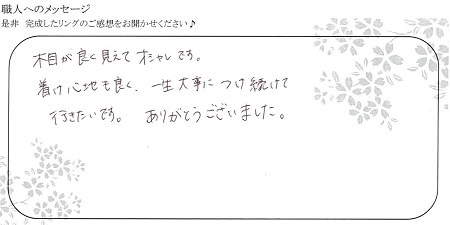 職人へのメッセージ
是非 完成したリングのご感想をお聞かせください♪
木目が良く見えてオシャレです。
着け心地も良く、一生大事につけ続けて
行きたいです。 ありがとうございました。